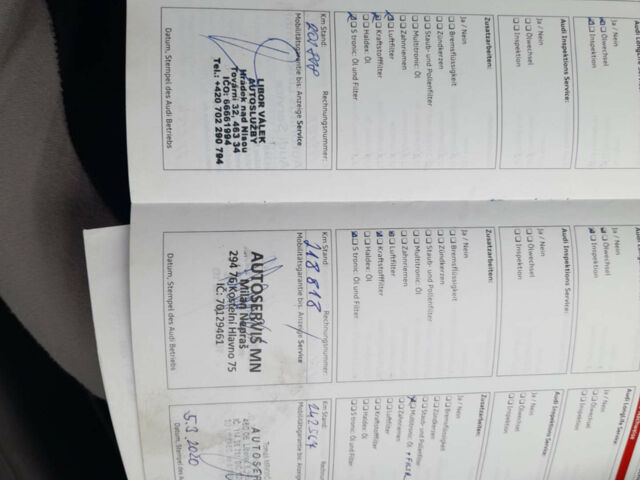 Audi LongLife
Ölwechsel
Inspektion
Audi Inspektions Service:
Ja / Nein
Ölwechsel
Inspektion
Zusatzarbeiten:
Ja / Nein
Bremsflüssigkeit
Zündkerzen
Staub- und Pollenfilter
Multitronic: Öl
Zahnriemen
Luftfilter
Kraftstofffilter
Haldex: Öl
S tronic: Öl und Filter
Km Stand:
Rechnungsnummer:
Mobilitätsgarantie bis: Anzeige Service
LIBOR VÁLEK
AUTOSLUŽBY
Hrádek nad Nisou
Tovární 32, 463 34
IČO: 66661994
Tel.: +420 702 290 794
Datum, Stempel des Audi Betriebs
Ja / Nein
Ölwechsel
Inspektion
Audi Inspektions Service:
Ja / Nein
Ölwechsel
Inspektion
Zusatzarbeiten:
Ja / Nein
Bremsflüssigkeit
Zündkerzen
Staub- und Pollenfilter
Multitronic: Öl
Zahnriemen
Luftfilter
Kraftstofffilter
Haldex: Öl
S tronic: Öl und Filter
Km Stand:
Rechnungsnummer:
218 818
Mobilitätsgarantie bis: Anzeige Service
AUTOSERVIS MN
Milan Nepraš
294 76 Kostelní Hlavno 75
IČ: 70129461
Datum, Stempel des Audi Betriebs
Audi LongLife Service:
Ja / Nein
Ölwechsel
Inspektion
Audi Inspektions Service:
Ja / Nein
Ölwechsel
Inspektion
Zusatzarbeiten:
Ja / Nein
Bremsflüssigkeit
Zündkerzen
Staub- und Pollenfilter
Multitronic: Öl + FILTR
Zahnriemen
Luftfilter
Kraftstofffilter
Haldex: Öl
S tronic: Öl und Filter
Km Stand:
242564
Mobilitätsgarantie bis: Anzeige
AUTOSER
5.3.2020
Datum, Stempel des Audi